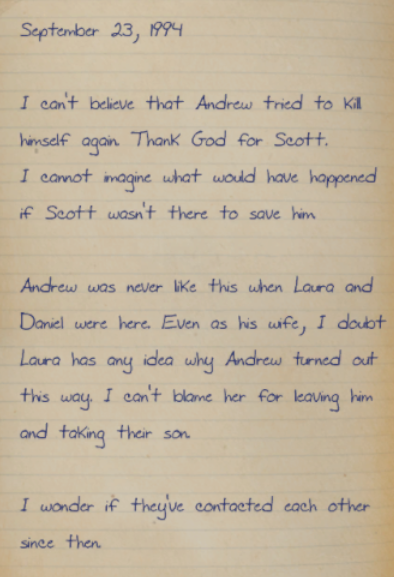 September 23, 1994
I can't believe that Andrew tried to kill
himself again. Thank God for Scott.
I cannot imagine what would have happened
if Scott wasn't there to save him.
Andrew was never like this when Laura and
Daniel were here. Even as his wife, I doubt
Laura has any idea why Andrew turned out
this way. I can't blame her for leaving him
and taking their son.
I wonder if they've contacted each other
since then.